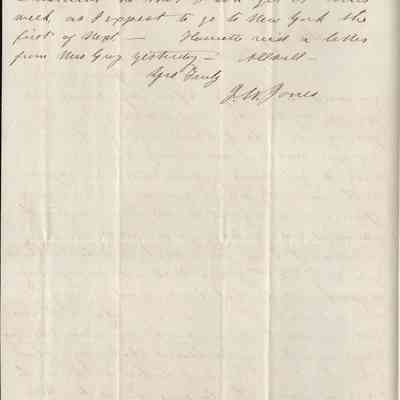 week, as I expect to go to New York the
first of next — Harriette recd a letter
from Mrs Gray yesterday — All well —
Yrs Truly
J. W. Jones